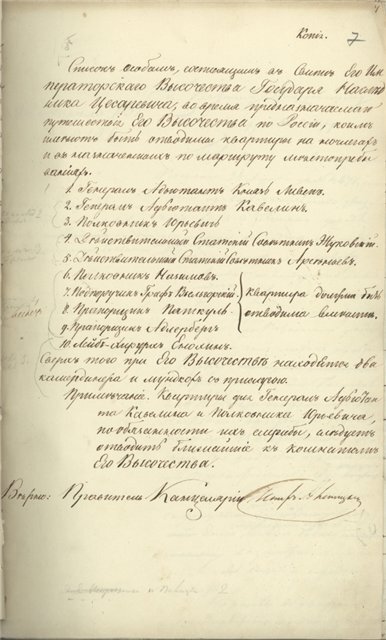 Копія.
7
Списокъ особамъ, состоящимъ въ Свитѣ Его Им
ператорскаго Высочества Государя Наслѣд
ника Цесаревича, во время предназначаемаго
путешествія Его Высочества по Россіи, коимъ
имѣютъ быть отводимы квартиры на ночлегахъ
и въ назначенныхъ по маршруту мѣстопребы
ваніяхъ.
1. Генералъ Адъютантъ Князь Ливенъ.
2. Генералъ Адъютантъ Кавелинъ.
3. Полковникъ Юрьевичъ
4. Дѣйствительный Статскій Совѣтникъ Жуковскій.
5. Дѣйствительный Статскій Совѣтникъ Арсеньевъ.
6. Полковникъ Назимовъ.
7. Подпоручикъ Графъ Віельгорскій.
8. Прапорщикъ Паткуль
9. Прапорщикъ Адлербергъ
квартира должна быть
отводима вмѣстѣ.
10. Лейбъ-Хирургъ Енохинъ.
Сверхъ того при Его Высочествѣ находятся два
камердинера и мундкохъ съ прислугою.
Примѣчаніе. Квартиры для Генералъ Адъютан
та Кавелина и Полковника Юрьевича,
по обязанности ихъ службы, слѣдуетъ
отводить ближайшіе къ комнатамъ
Его Высочества.
Вѣрно: Правитель Канцеляріи